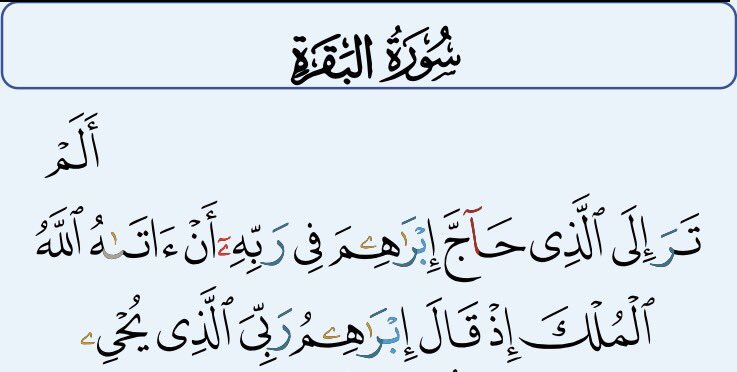 سُورَةُ البَقَرَةِ
أَلَمْ
تَرَ إِلَى ٱلَّذِى حَآجَّ إِبْرَٰهِۦمَ فِى رَبِّهِۦٓ أَنْ ءَاتَىٰهُ ٱللَّهُ
ٱلْمُلْكَ إِذْ قَالَ إِبْرَٰهِۦمُ رَبِّىَ ٱلَّذِى يُحْىِۦ